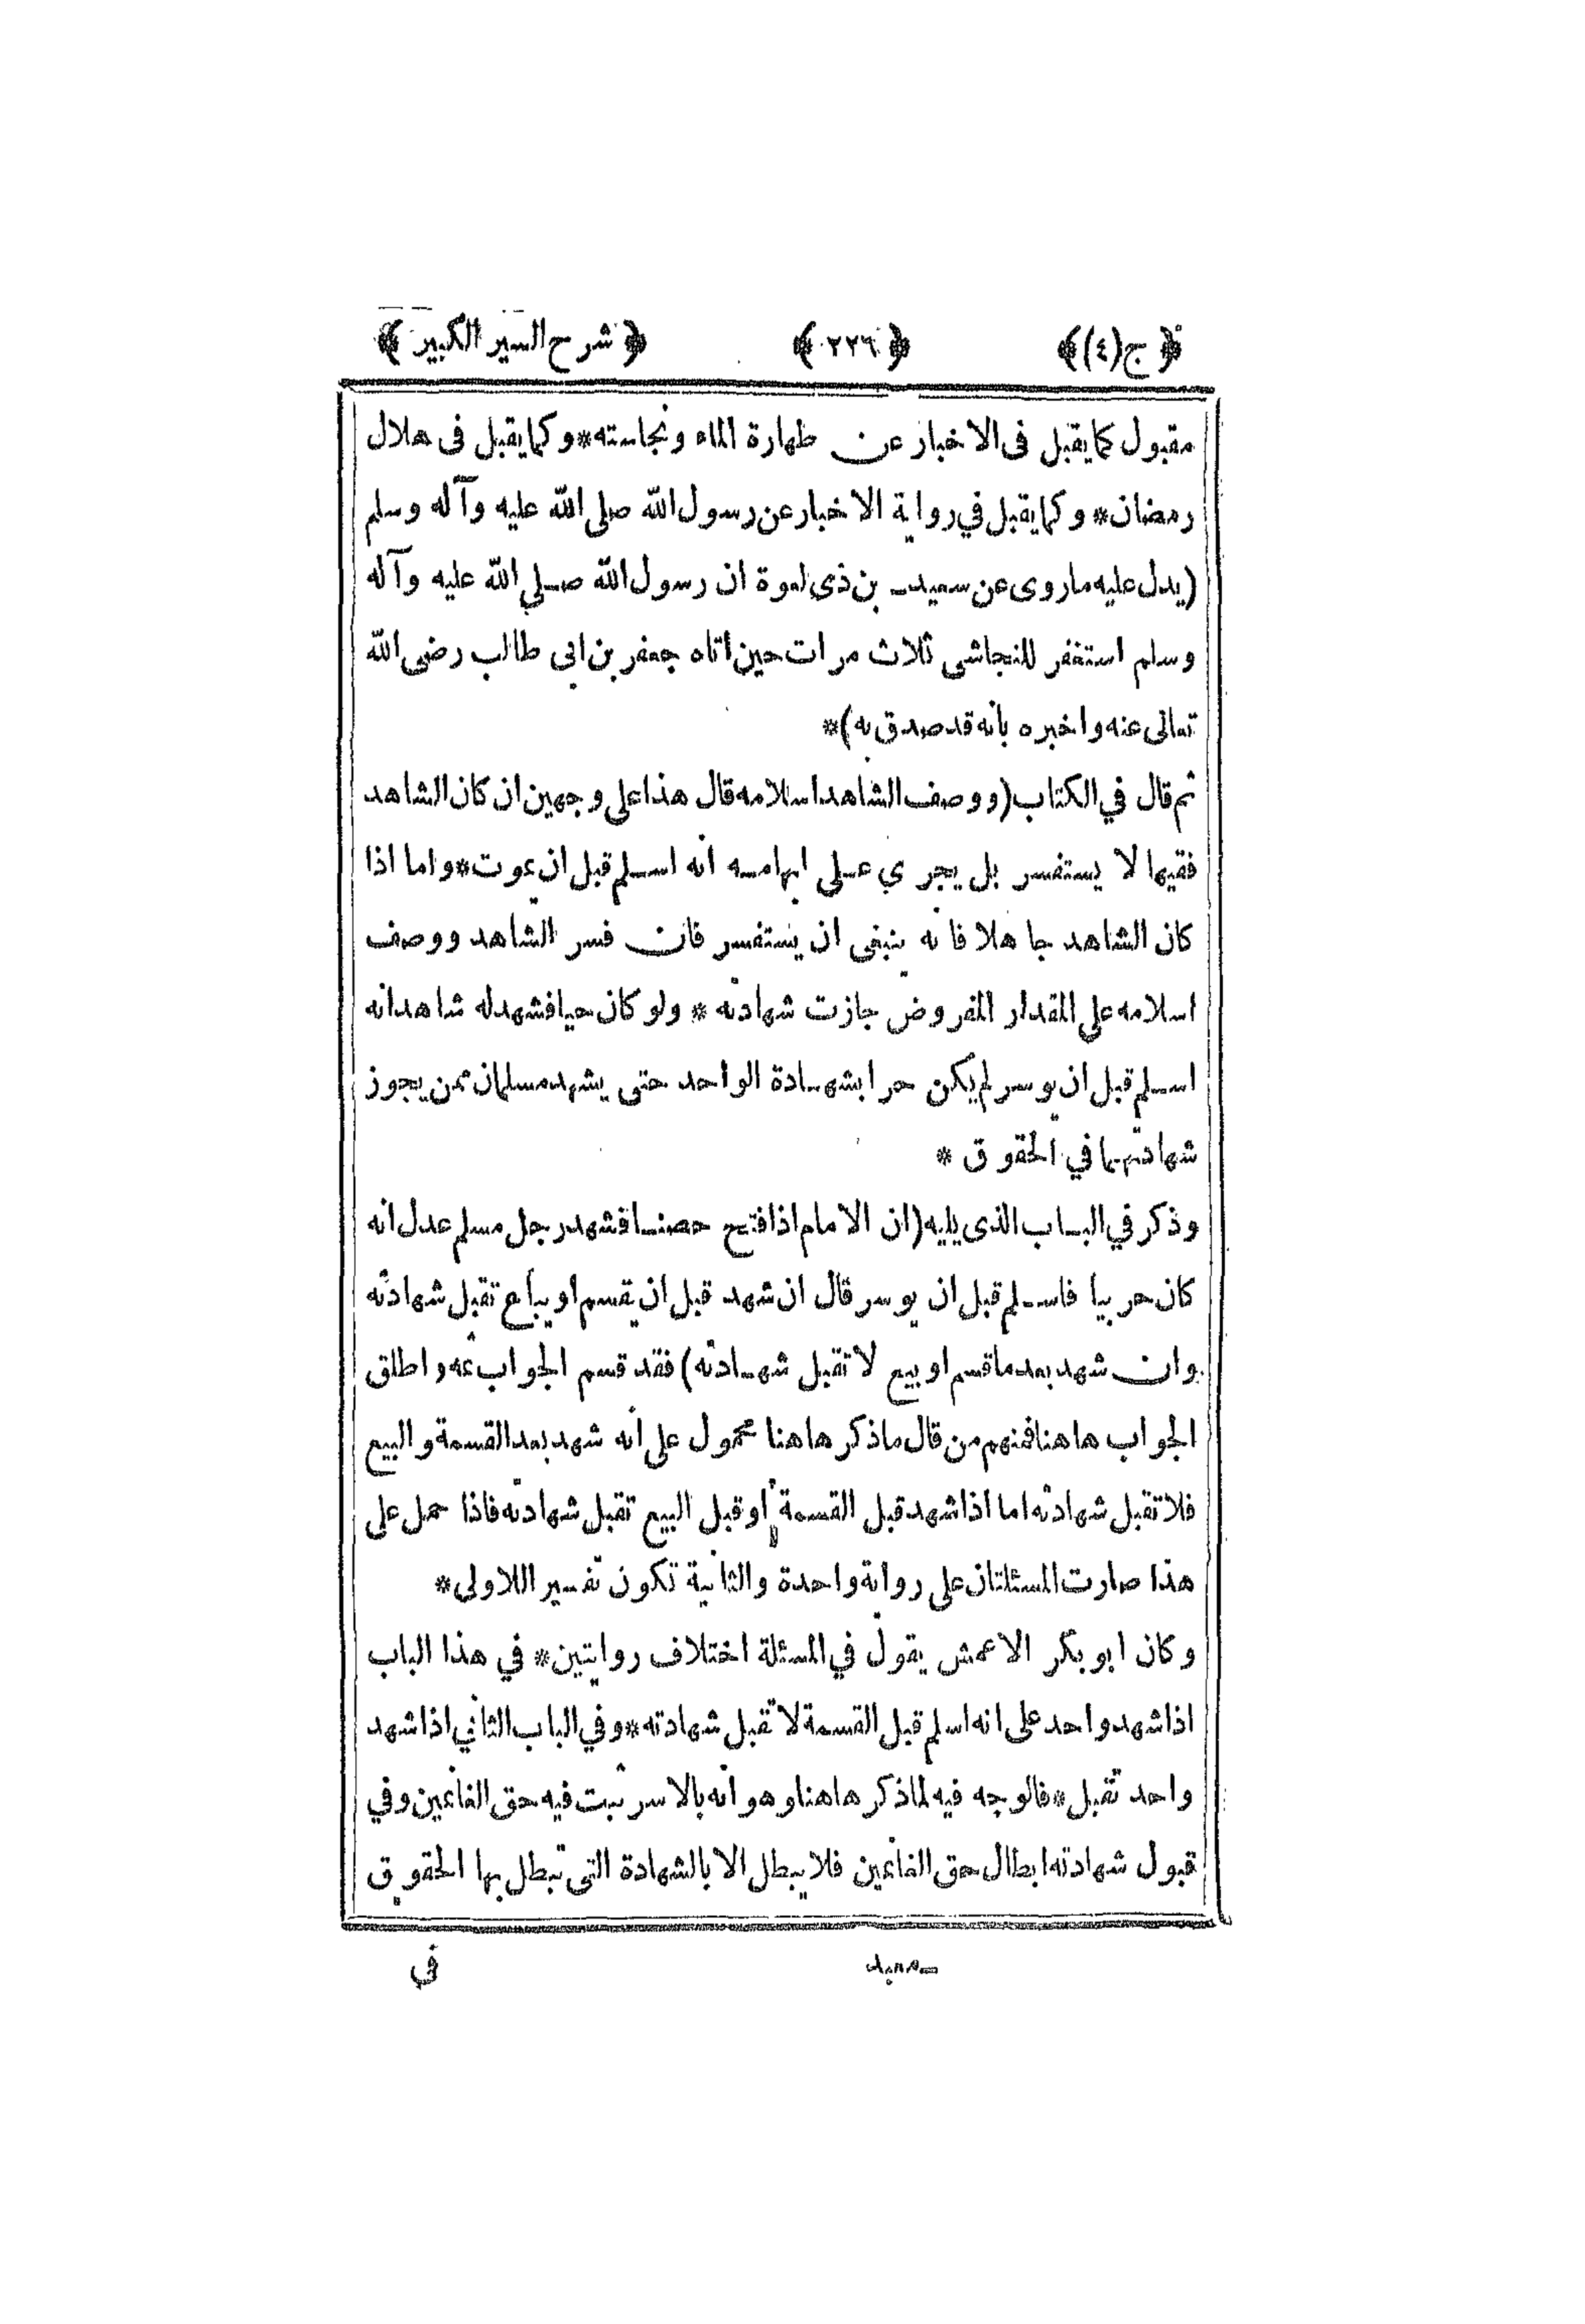 ﴿ج(٤)﴾ ﴿٢٢٦﴾ ﴿شرح السير الكبير﴾
مقبول كما يقبل فى الاخبار عن طهارة الماء ونجاسته*وكما يقبل فى هلال
رمضان* وكما يقبل في رواية الاخبار عن رسول الله صلى الله عليه وآله وسلم
(يدل عليه ماروى عن سعيد بن ذى لعوة ان رسول الله صلي الله عليه وآله
وسلم استغفر للنجاشى ثلاث مرات حين اتاه جعفر بن ابى طالب رضى الله
تعالى عنه واخبره بانه قد صدق به)*
ثم قال في الكتاب (ووصف الشاهد اسلامه قال هذا على وجهين ان كان الشاهد
فقيها لا يستفسر بل يجري على ابهامه انه اسلم قبل ان يموت*واما اذا
كان الشاهد جاهلا فانه ينبغى ان يستفسر فان فسر الشاهد ووصف
اسلامه على المقدار المفروض جازت شهادته * ولو كان حيا فشهد له شاهد انه
اسلم قبل ان يوسر لم يكن حرا بشهادة الواحد حتى يشهد مسلمان ممن يجوز
شهادتهما في الحقوق *
وذكر في الباب الذى يليه (ان الامام اذا فتح حصنا فشهد رجل مسلم عدل انه
كان حربيا فاسلم قبل ان يوسر قال ان شهد قبل ان يقسم او يباع تقبل شهادته
وان شهد بعد ماقسم او بيع لا تقبل شهادته) فقد قسم الجواب ثمه واطلق
الجواب هاهنا فمنهم من قال ماذكر هاهنا محمول على انه شهد بعد القسمة والبيع
فلا تقبل شهادته اما اذا شهد قبل القسمة او قبل البيع تقبل شهادته فاذا حمل على
هذا صارت المسئلتان على رواية واحدة والثانية تكون تفسيرا للاولى*
وكان ابو بكر الاعمش يقول في المسئلة اختلاف روايتين* في هذا الباب
اذا شهد واحد على انه اسلم قبل القسمة لا تقبل شهادته*وفي الباب الثاني اذا شهد
واحد تقبل*فالوجه فيه لما ذكر هاهنا وهو انه بالاسر ثبت فيه حق الغانمين وفي
قبول شهادته ابطال حق الغانمين فلا يبطل الا بالشهادة التى تبطل بها الحقوق
في